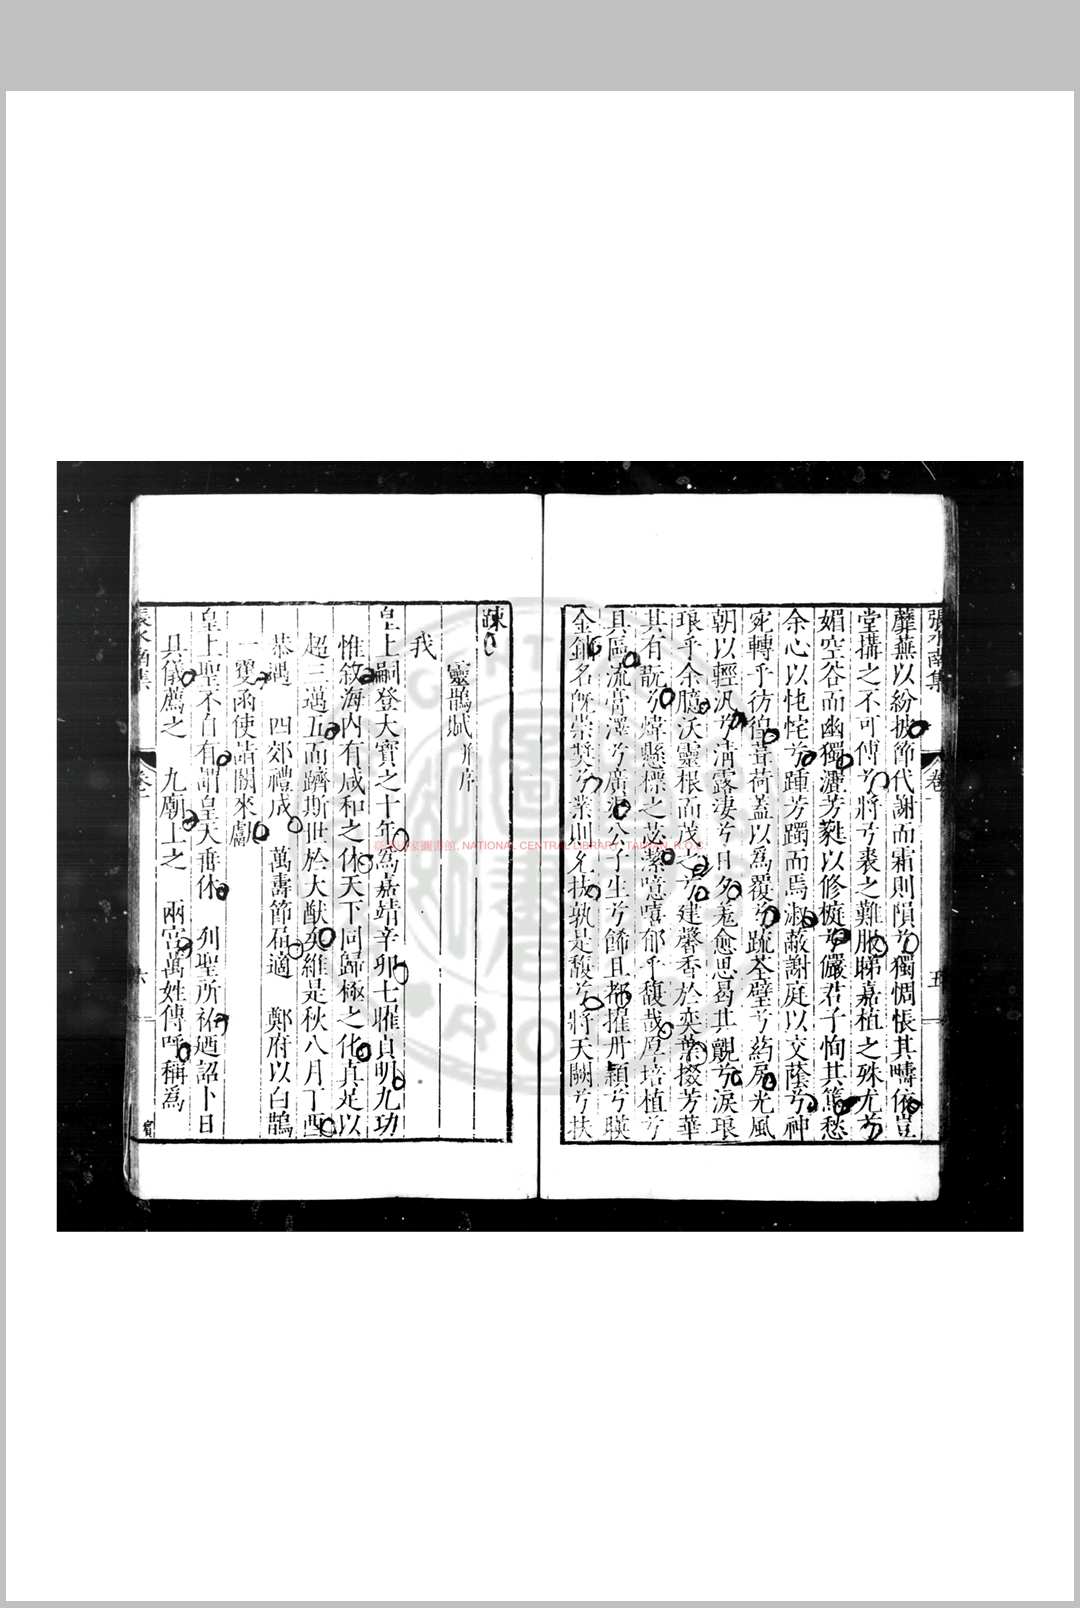 張水南集
卷一
五
蘼蕪以紛披節代謝而霜則隕兮獨惆悵其疇依豈
堂搆之不可傅兮將兮裘之難勝睇嘉植之殊尤兮
媚空谷而幽獨灑芳蕤以修㮰兮儼君子恂其篤愁
余心以忳忳兮踵芳躅而焉淑蔽謝庭以交蔭兮神
宛轉乎彷徨葺荷蓋以爲覆兮疏荃壁兮葯房光風
朝以輕汎兮淸露淒兮日夕羗愈思曷其覿兮淚琅
琅乎余臆沃靈根而茂之兮建馨香於奕葉掇芳華
其有翫兮煒縣標之苾蘩噫嘻郁乎馥哉厚培植兮
具區流膏澤兮廣混公子生兮飾且都擢册頴兮暎
金名旣崇奬兮業則允扶孰是馥兮將天闕兮扶
疎
靈鵲賦 并序
我
皇上嗣登大寶之十年爲嘉靖辛卯七雕貞明九功
惟敘海內有咸和之休天下同歸極之化眞足以
超三邁五而躋斯世於大猷矣維是秋八月丁酉
恭遇 四郊禮成 萬壽節屆適 鄭府以白鵲
一雙函使詣闕來獻
皇上聖不自有謂皇天畨休 列聖所祐廼詔卜日
具儀薦之 九廟上之 兩宮萬姓傳呼稱爲
張水南集
卷一
六